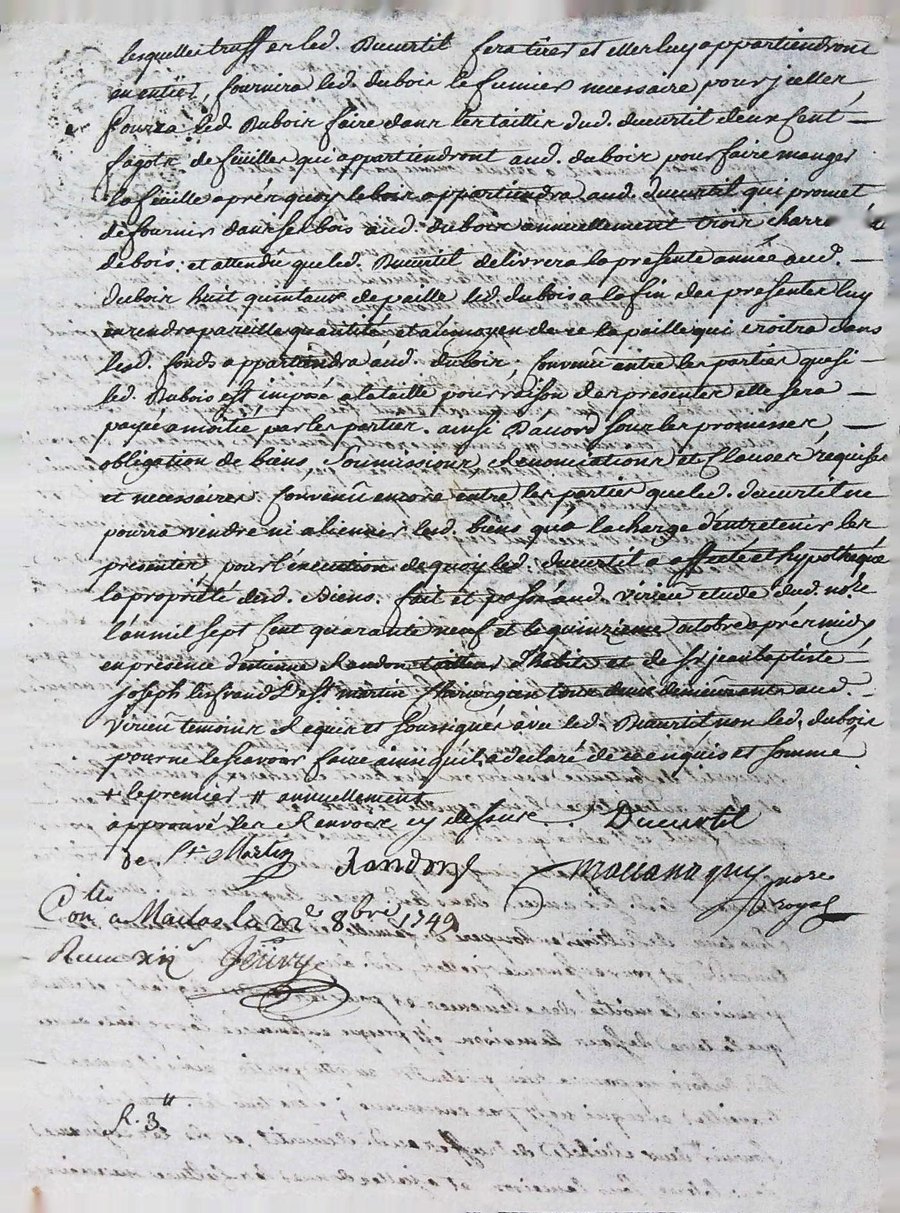 lesquelles truffes led. Ducurtil fera tirer et elles luy appartiendront
en entier, fournira led. dubois le fumier necessaire pour jcelles,
pourra led. Dubois faire dans les taillis dud. ducurtil deux Cent
fagots de feüilles qui appartiendront aud. dubois pour faire manger
la feüille aprés quoy le bois appartiendra aud. ducurtil qui promet
de fournir dans ses bois aud. dubois annuellement trois charré
de bois. et attendu que led. Ducurtil delivrera la presente année aud.
dubois huit quintaux de paille led. dubois a la fin des presentes luy
en rendra pareille quantité, et a u moyen de ce la paille qui croitra dans
lesd. fonds appartiendra aud. dubois; Convenû entre les parties que si
led. Dubois est imposé a la taille pour raison des presentes elle sera
payée a moitié par les parties. ainsi D'accord sous les promesses,
obligation de biens, Soumissions, Renonciations et Clauses requises
et necessaires. Convenû encore entre les parties que led. ducurtil ne
pourra vendre ni aliener lesd. biens qu'a la charge d'entretenir les
presentes pour l'execution de quoy led. ducurtil a affecté et hypothéqué
la propriété desd. Biens. fait et passé aud. virieu etude dud. nore
l'an mil sept Cent quarante neuf et le quinzieme octobre aprés midy
en presence d'etienne Randon tailleur d'habits et de Sr jean baptiste
joseph de St. martin Chirurgien tous deux demeurants aud.
virieu temoins Requis et soussignés avec led. Ducurtil non led. dubois
pour ne le scavoir faire ainsi qu'il a declaré de ce enquis et sommé
+ le premier # annuellement
approuvé les Renvois cy dessus. Ducurtil
de St. Martin Randon
nore royal
Con. a le 22e 8bre 1749
Receu xii s
R. 3"